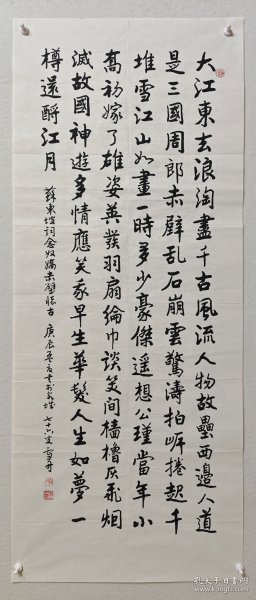 大江東去浪淘盡千古風流人物故壘西邊人道
是三國周郎赤壁乱石崩雲驚濤拍岸捲起千
堆雪江山如畫一時多少豪傑遥想公瑾當年小
喬初嫁了雄姿英發羽扇綸巾談笑间樯橹灰飛烟
滅故國神遊多情應笑我早生華髮人生如夢一
樽還酹江月
蘇東坡詞念奴嬌赤壁懷古
庚辰
七十六叟
孔夫子旧书网